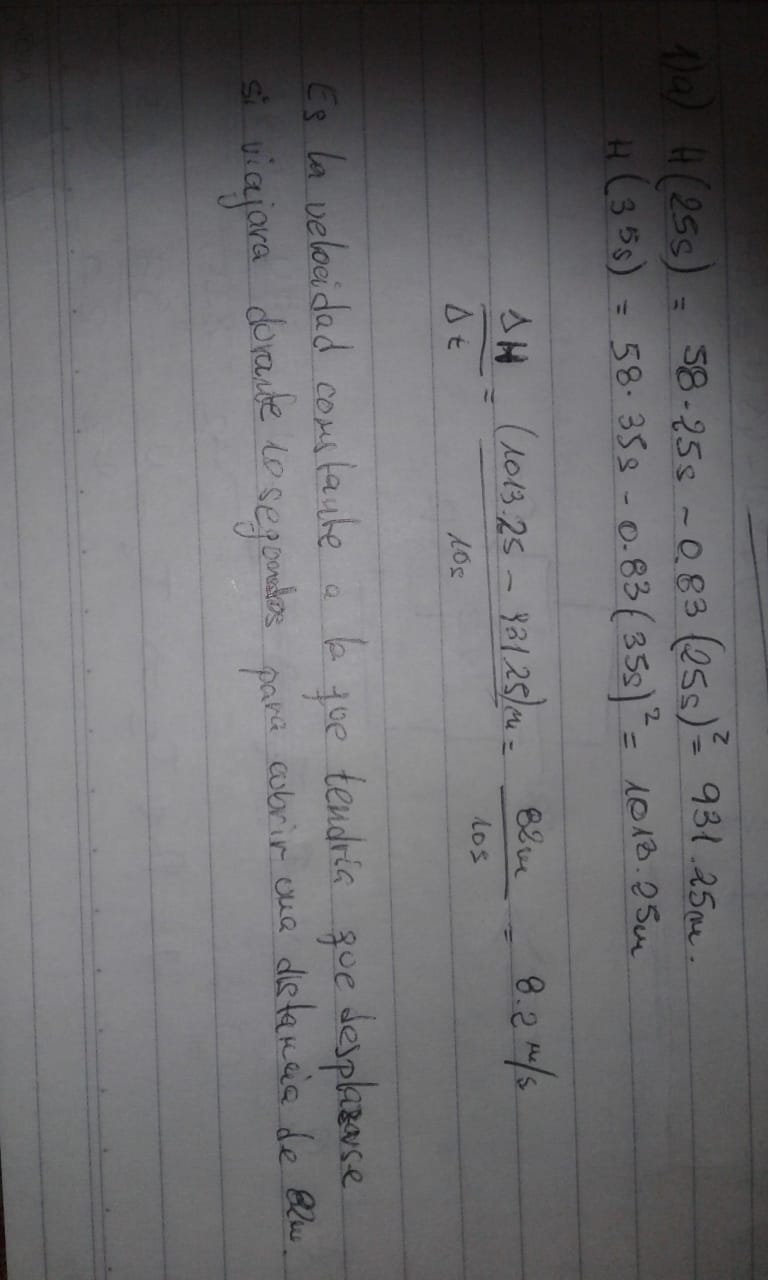 1)a) H(25s) = 58·25s - 0.83(25s)² = 931.25m.
H(35s) = 58·35s - 0.83(35s)² = 1013.25m
ΔH/Δt = (1013.25 - 931.25)m/10s = 82m/10s = 8.2 m/s
Es la velocidad constante a la que tendría que desplazarse
si viajara durante 10 segundos para cubrir una distancia de 82m.
NOTA